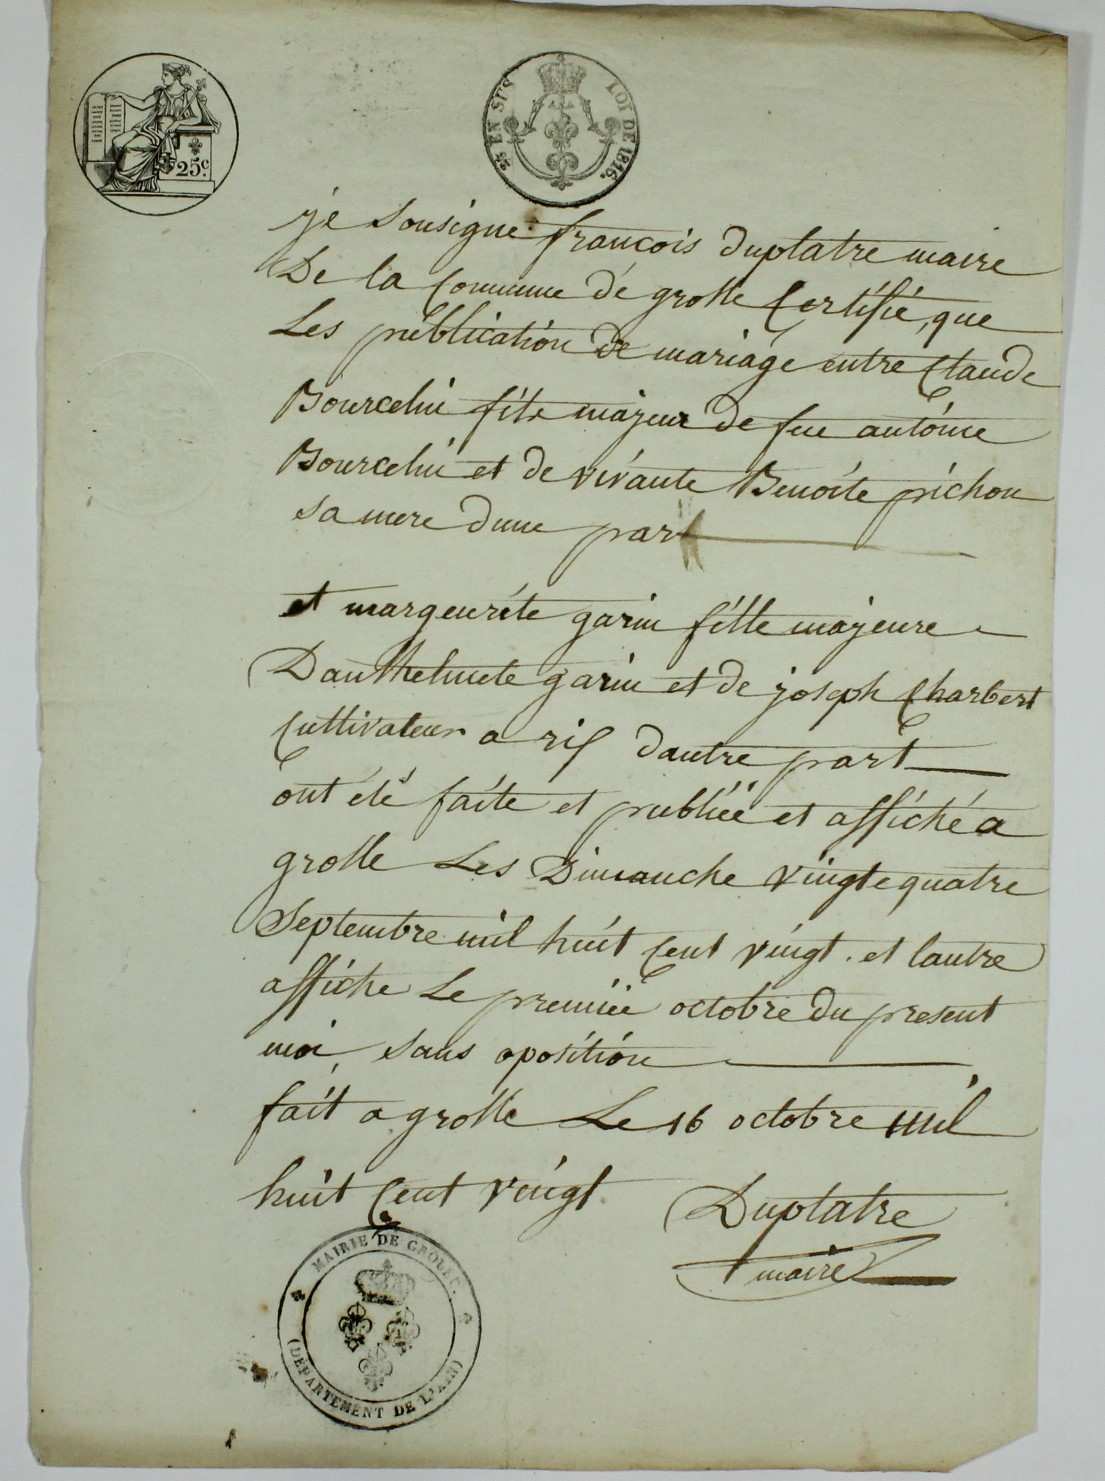 25c.
25 EN SUS LOI DE 1816.
je Sousigne francois duplatre maire
De la Commune de grolle Certifié, que
Les publication de mariage entre Claude
Bourcelin fils majeur de feu antoine
Bourcelin et de vivante Benoite pichon
sa mere dune part
et margeurite garin fille majeure
Danthelmete garin et de joseph Charbert
Cultivateur a rix dautre part
ont été faite et publiéé et affiché a
grolle Les Dimanche vingtequatre
Septembre mil huit Cent vingt. et lautre
affiche Le premiéé octobre du present
moi, sans oposition
fait a grolle Le 16 octobre mil
huit Cent vingt
Duplatre
maire
MAIRIE DE GROLÉE.
(DÉPARTEMENT DE L'AIN)